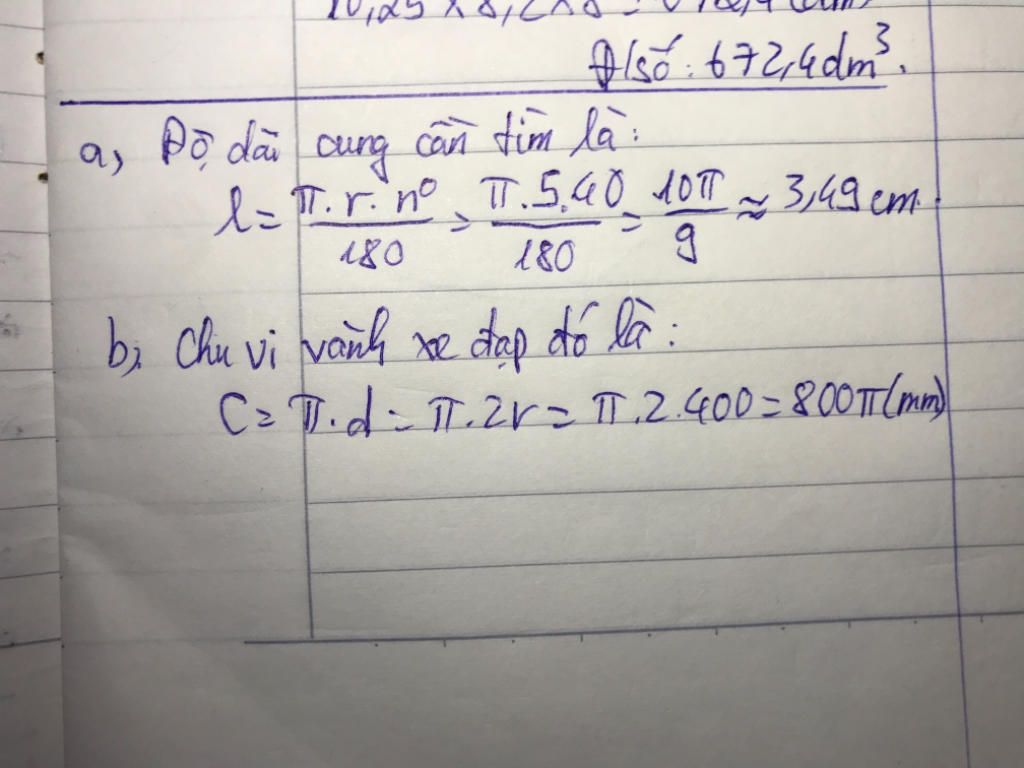 Đ/số: 672,4dm³.
a, Độ dài cung cần tìm là:
l = π.r.n⁰/180 = π.5.40/180 = 10π/9 ≈ 3,49 cm.
b, Chu vi vành xe đạp đó là:
C = π.d = π.2r = π.2.400 = 800π(mm)